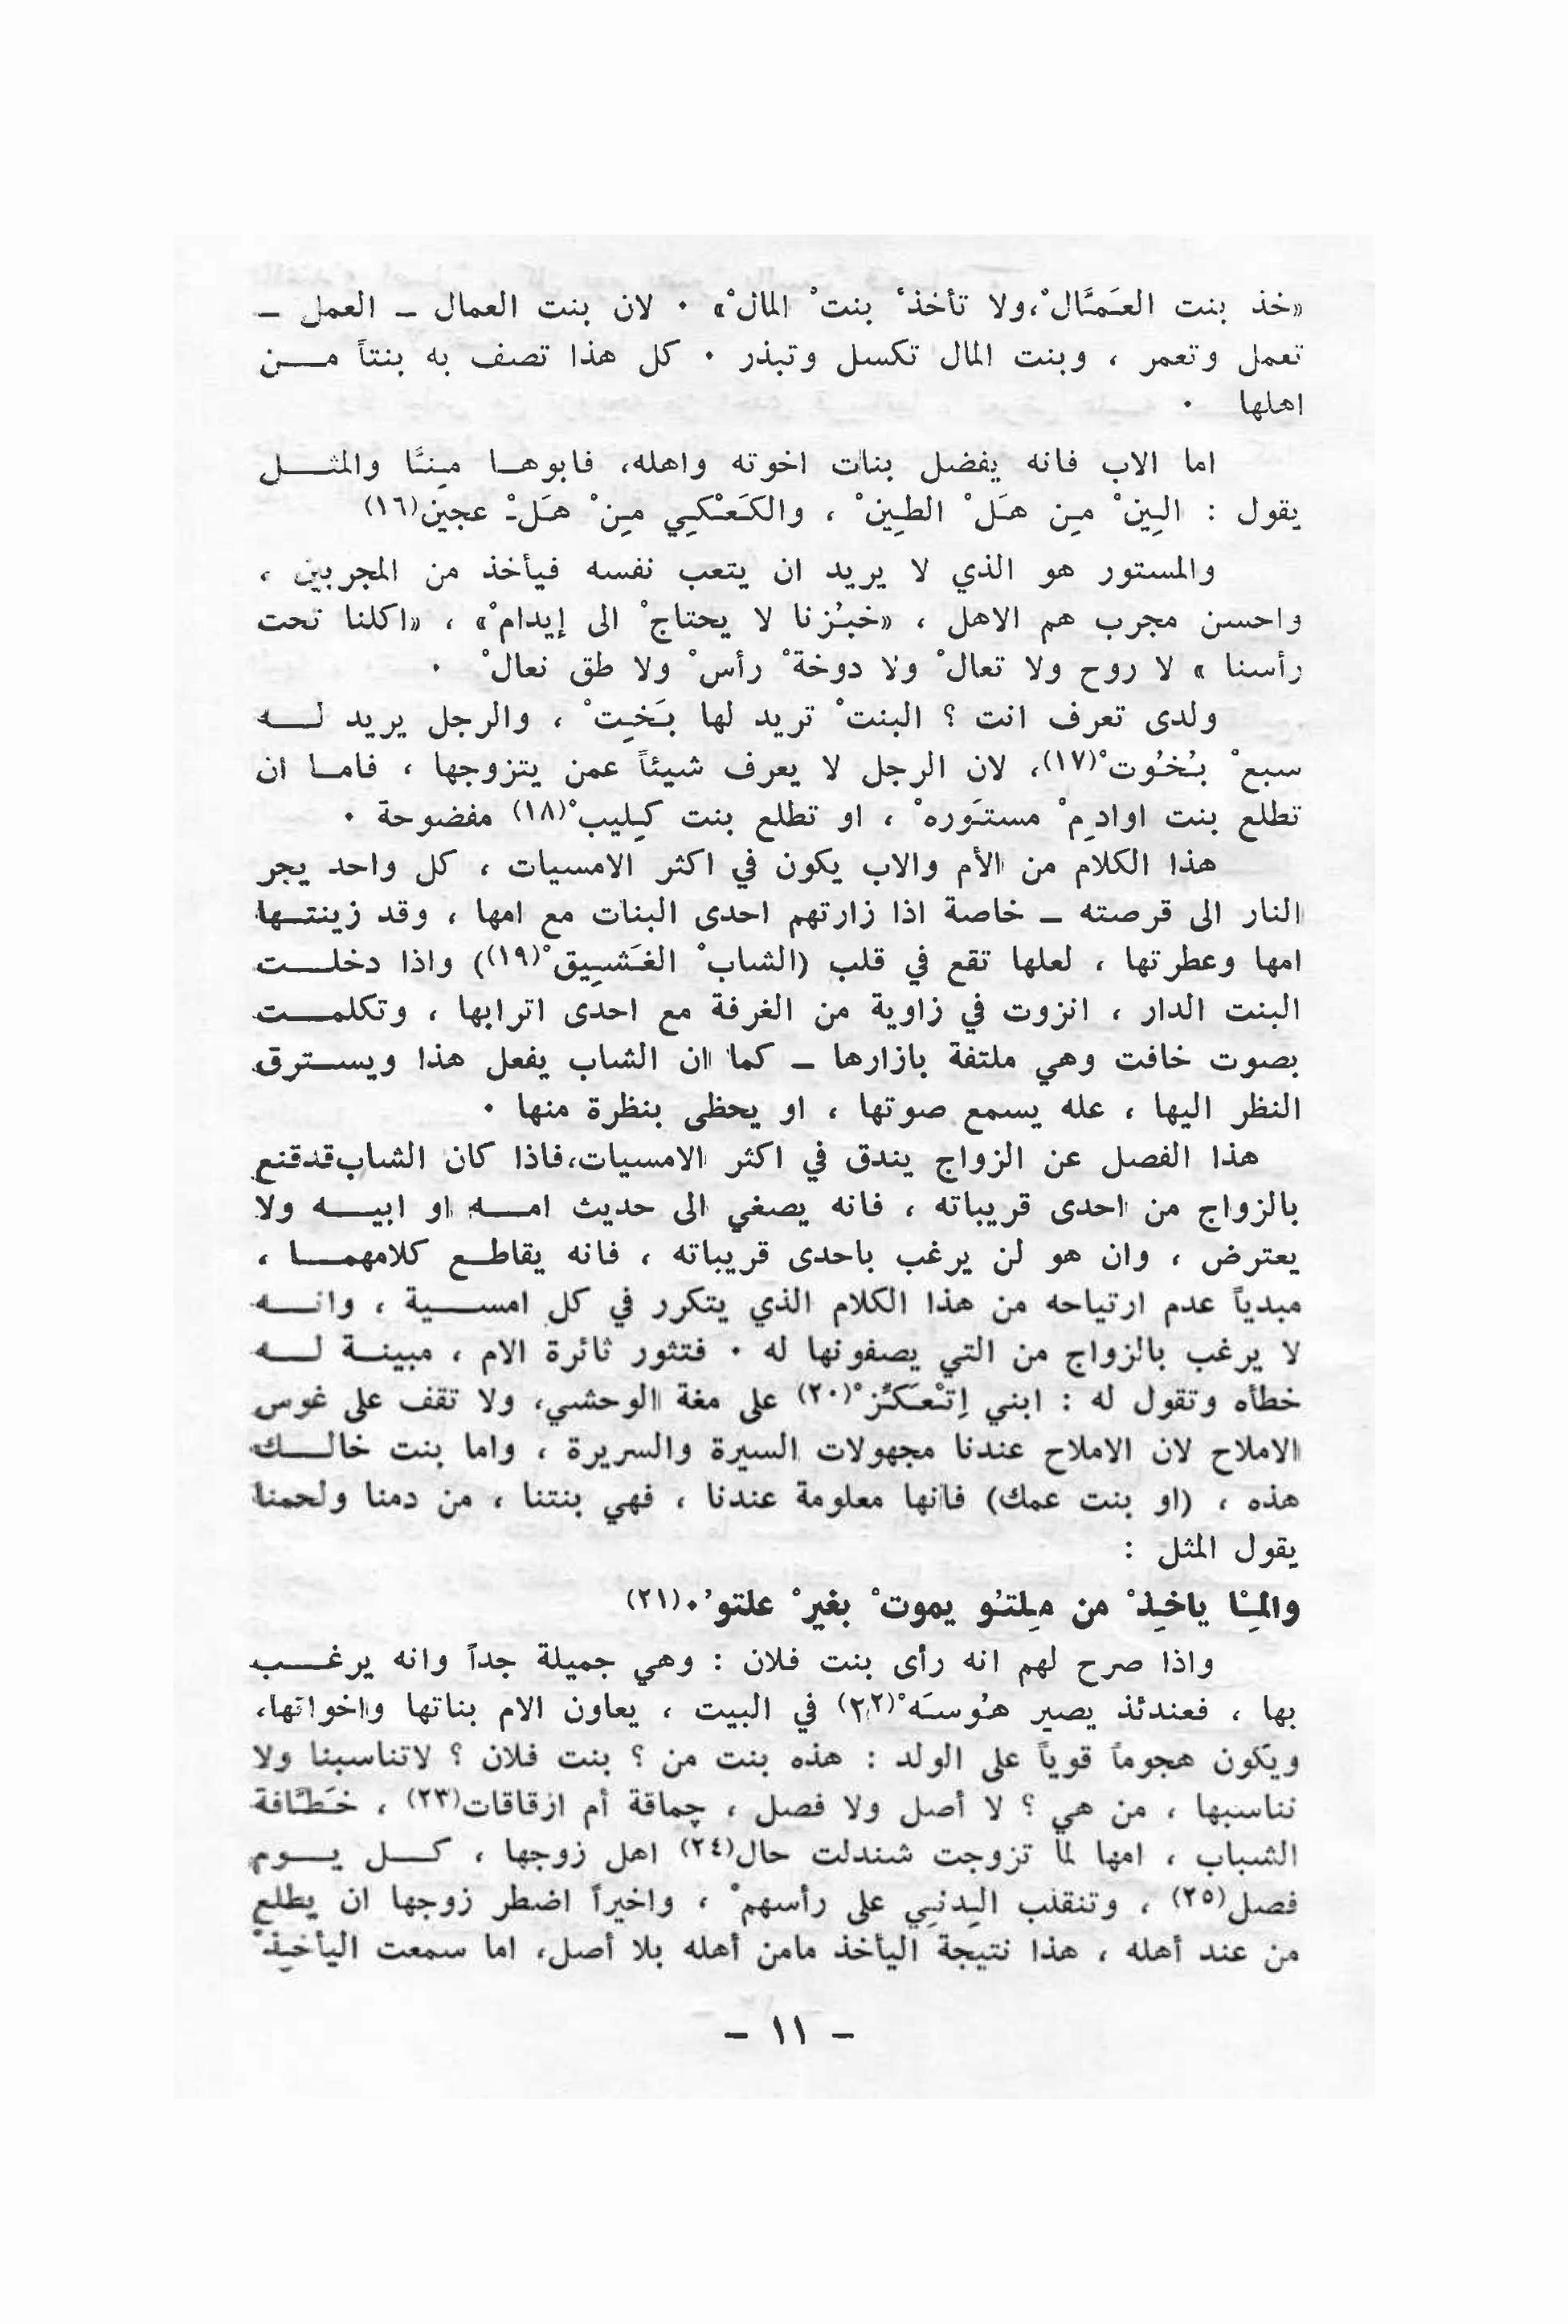 «خذ بنت العَمَّالْ،ولا تأخذْ بنتْ المالْ» ٠ لان بنت العمال ــ العمل ــ
تعمل وتعمر ، وبنت المال تكسل وتبذر ٠ كل هذا تصف به بنتاً مـــن
اهلها ٠
اما الاب فانه يفضل بنات اخوته واهله، فابوهــا مِنَّا والمثـــل
يقول : الـِينْ مـِن هـَلْ الطـِينْ ، والكـَعـْكـِي مـِنْ هـَلـْ عجين(١٦)
والمستور هو الذي لا يريد ان يتعب نفسه فيأخذ من المجربين ،
واحسن مجرب هم الاهل ، «خبـُزنا لا يحتاجْ الى إيدامْ» ، «اكلنا تحت
رأسنا » لا روح ولا تعالْ ولا دوخةْ رأسْ ولا طق نعالْ ٠
ولدى تعرف انت ؟ البنتْ تريد لها بـَخـِتْ ، والرجل يريد لـــه
سبعْ بـُخـُوتْ(١٧)، لان الرجل لا يعرف شيئاً عمن يتزوجها ، فامــا ان
تطلع بنت اوادِمْ مستـَورهْ ، او تطلع بنت كـِليبْ(١٨) مفضوحة ٠
هذا الكلام من الأم والاب يكون في اكثر الامسيات ، كل واحد يجر
النار الى قرصته ــ خاصة اذا زارتهم احدى البنات مع امها ، وقد زينتــها
امها وعطرتها ، لعلها تقع في قلب (الشابْ الغـَشـِيقْ(١٩)) واذا دخلـــت
البنت الدار ، انزوت في زاوية من الغرفة مع احدى اترابها ، وتكلمـــت
بصوت خافت وهي ملتفة بازارها ــ كما ان الشاب يفعل هذا ويســترق
النظر اليها ، عله يسمع صوتها ، او يحظى بنظرة منها ٠
هذا الفصل عن الزواج يندق في اكثر الامسيات،فاذا كان الشاب قدقنع
بالزواج من احدى قريباته ، فانه يصغي الى حديث امـــه او ابيـــه ولا
يعترض ، وان هو لن يرغب باحدى قريباته ، فانه يقاطــع كلامهمـــا ،
مبدياً عدم ارتياحه من هذا الكلام الذي يتكرر في كل امســـية ، وانـــه
لا يرغب بالزواج من التي يصفونها له ٠ فتثور ثائرة الام ، مبينــة لـــه
خطأه وتقول له : ابني اِتـْعـَكـَّزْ(٢٠) على مغة الوحشي، ولا تقف على غوس
الاملاح لان الاملاح عندنا مجهولات السيرة والسريرة ، واما بنت خالـــك
هذه ، (او بنت عمك) فانها معلومة عندنا ، فهي بنتنا ، من دمنا ولحمنا
يقول المثل :
والـِمـْا ياخـِذْ من مـِلتـُو يموتْ بغيرْ علتو٠(٢١)
واذا صرح لهم انه رأى بنت فلان : وهي جميلة جداً وانه يرغـــب
بها ، فعندئذ يصير هـُوسـَهْ(٢٢) في البيت ، يعاون الام بناتها واخواتها،
ويكون هجوماً قوياً على الولد : هذه بنت من ؟ بنت فلان ؟ لاتناسبنا ولا
نناسبها ، من هي ؟ لا أصل ولا فصل ، چماقة أم ازقاقات(٢٣) ، خـَطـَّافة
الشباب ، امها لما تزوجت شندلت حال(٢٤) اهل زوجها ، كـــل يـــوم
فصل(٢٥) ، وتنقلب الـِدنـِي على رأسهمْ ، واخيراً اضطر زوجها ان يطلع
من عند أهله ، هذا نتيجة اليأخذ مامن أهله بلا أصل، اما سمعت اليأخـِذْ
ــ ١١ ــ